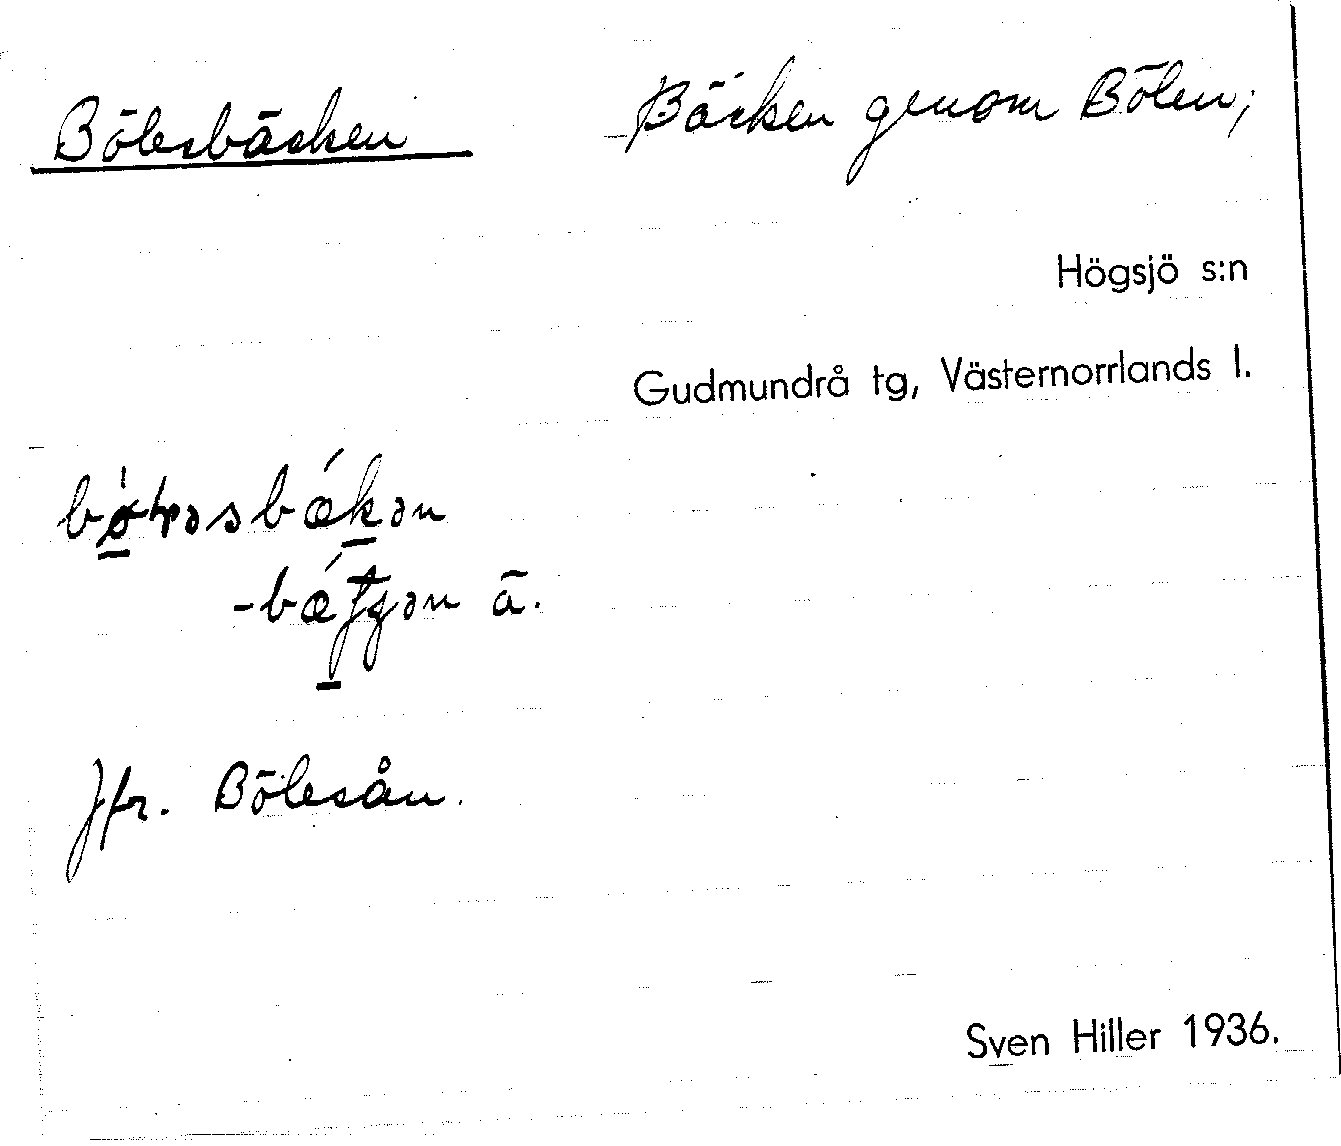 Bölesbäcken Bäcken genom Bölen;
Högsjö s:n
Gudmundrå tg, Västernorrlands l.
ā.
Jfr. Bölesån.
Sven Hiller 1936.